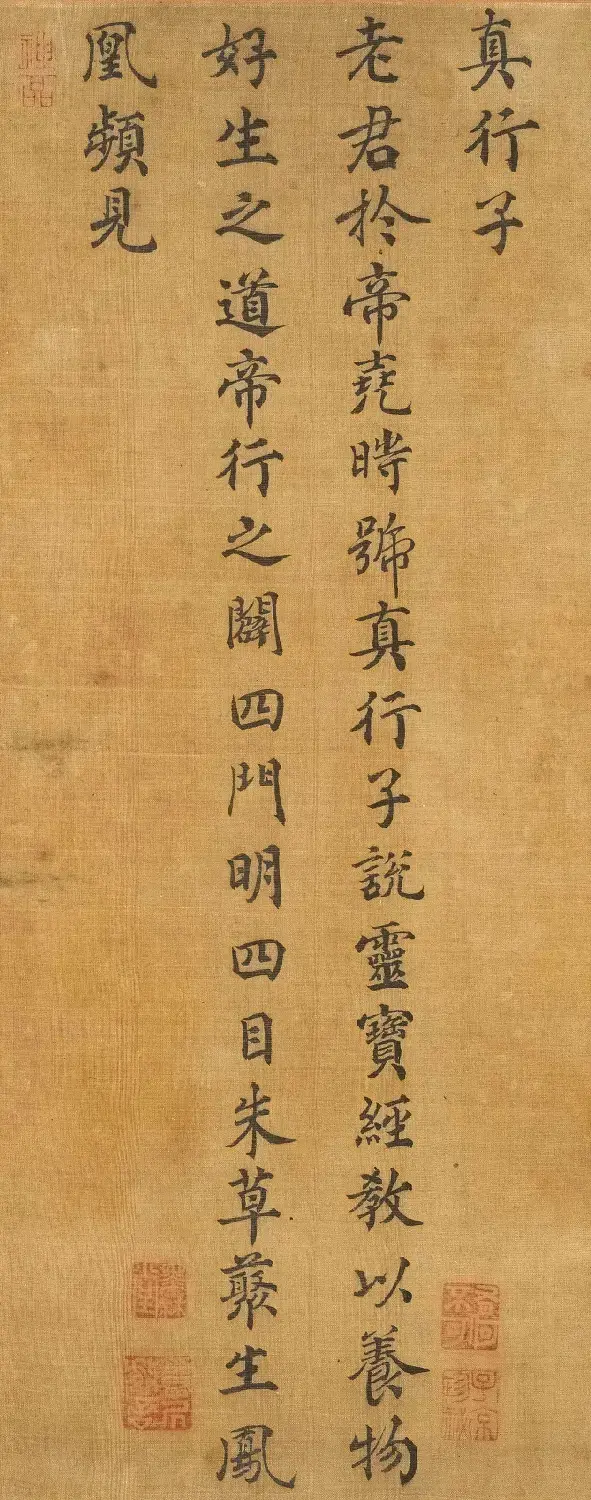 真行子
老君扵帝堯時號真行子說靈寶經教以養物
好生之道帝行之闢四門明四目朱草叢生鳳
凰頻見
神品